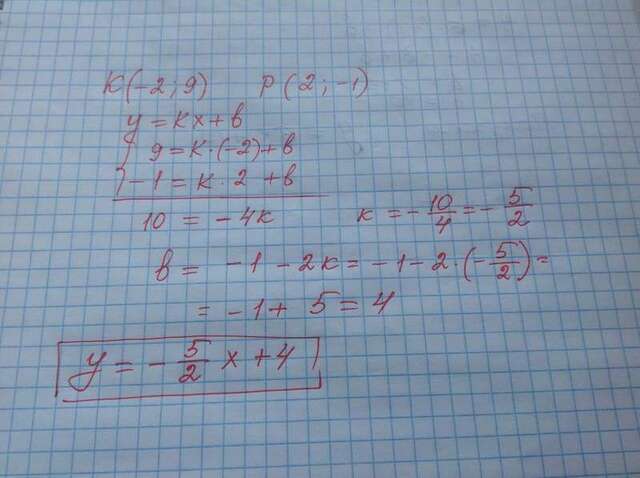 K(-2; 9) P(2; -1)
y = kx + b
9 = k·(-2) + b
-1 = k·2 + b
10 = -4k k = -10/4 = -5/2
b = -1 - 2k = -1 - 2·(-5/2) =
= -1 + 5 = 4
y = -5/2 x + 4